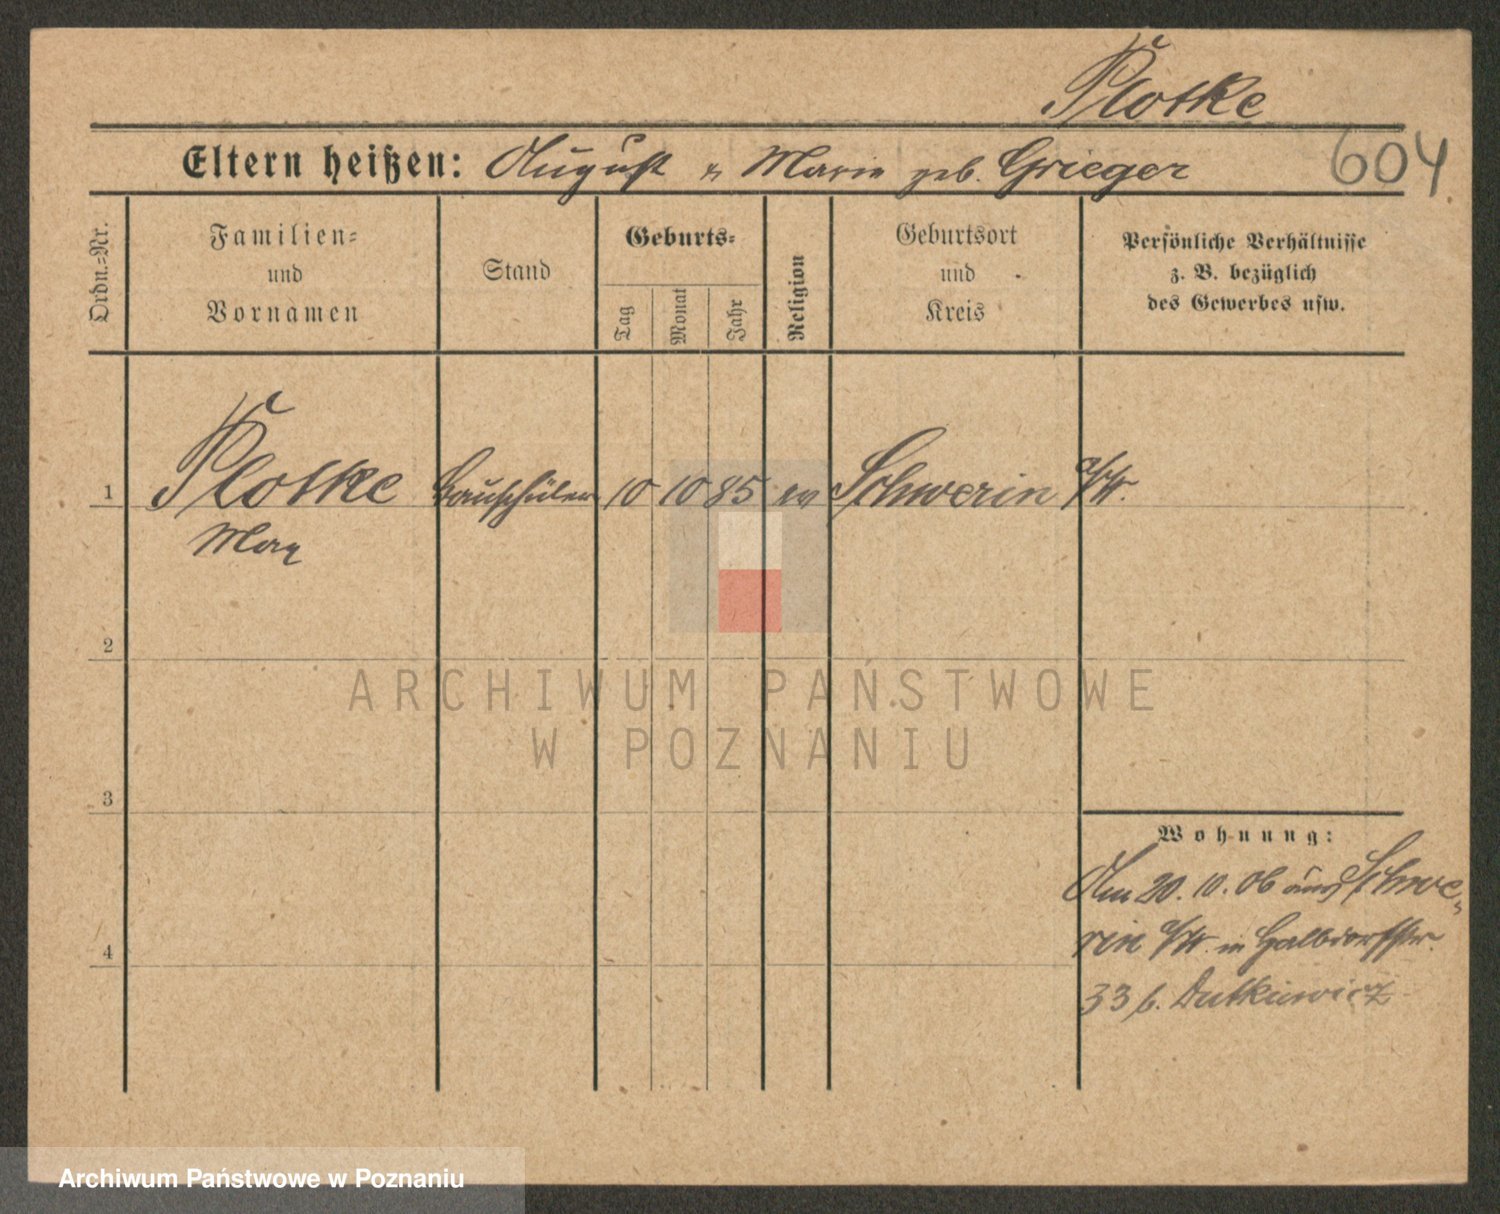 Plotke
Eltern heißen: August u Marie geb. Grieger
604
Ordn.-Nr.
Familien-
und
Vornamen
Stand
Geburts-
Tag
Monat
Jahr
Religion
Geburtsort
und
Kreis
Persönliche Verhältnisse
z. B. bezüglich
des Gewerbes usw.
1 Plotke Bauschüler 10 10 85 ev Schwerin a/W.
Max
2
3
4
Wohnung:
Am 20. 10. 06 aus Schwe-
rin a/W. in Halbdorfstr.
33 b. Dutkiewicz
ARCHIWUM PAŃSTWOWE
W POZNANIU
Archiwum Państwowe w Poznaniu